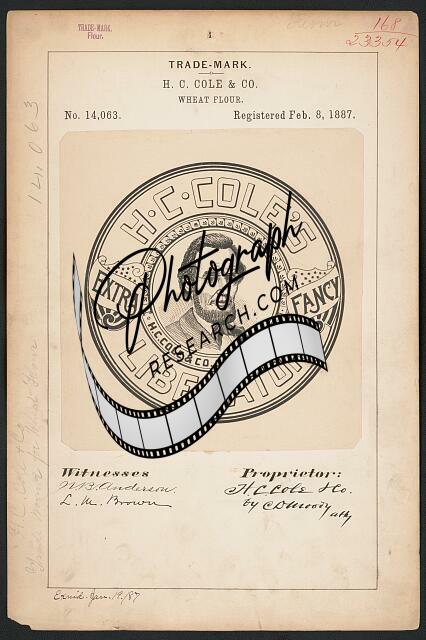 TRADE-MARK.
Flour.
1
168
23354
TRADE-MARK.
H. C. COLE & CO.
WHEAT FLOUR.
No. 14,063.
Registered Feb. 8, 1887.
14,063
H·C·COLE'S
EXTRA
FANCY
H.C.COLE & CO
Photograph
RESEARCH.COM
Witnesses
Proprietor:
N.B. Anderson.
H. C. Cole & Co.
L. M. Brown
by C D Moody
atty
Exmd. Jan. 19/87